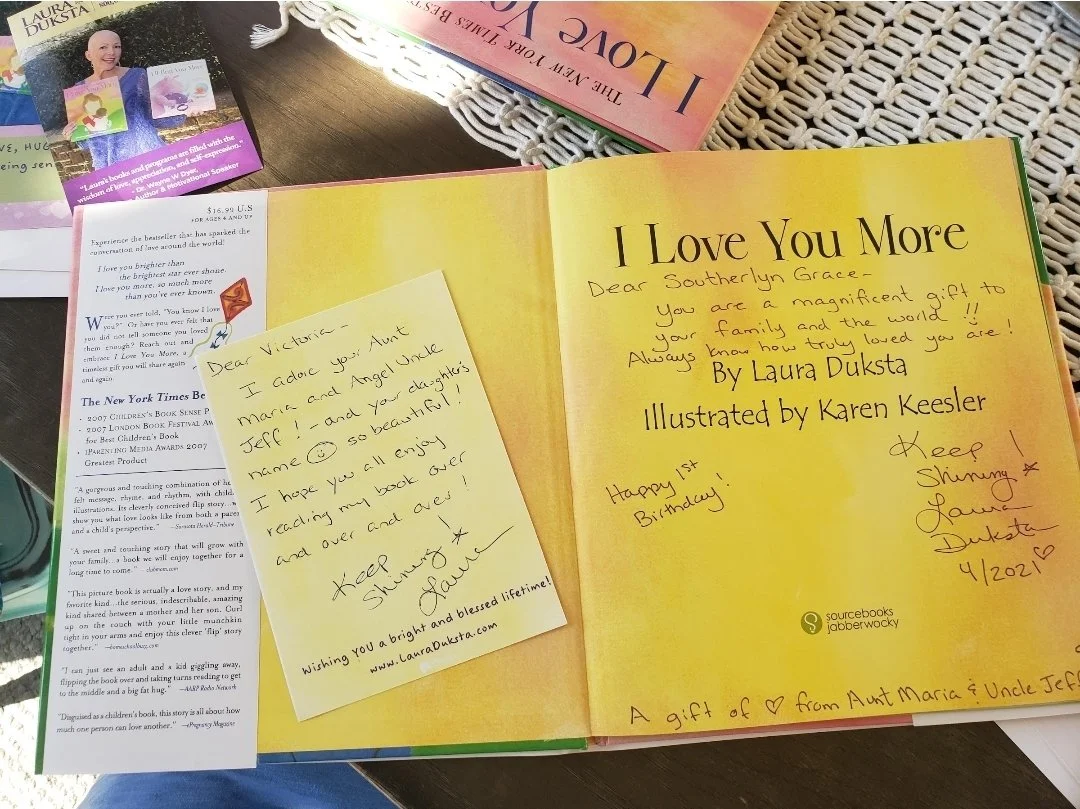 LAURA
DUKSTA
I Love You More
I'll Beat You More
"Laura's books and programs are filled with the
wisdom of love, appreciation, and self-expression."
- Dr. Wayne W Dyer,
Author & Motivational Speaker
VE, HUG
eing sen
THE NEW YORK TIMES BEST
I Love Yo
$16.99 U.S
FOR AGES 4 AND UP
Experience the bestseller that has sparked the
conversation of love around the world!
I love you brighter than
the brightest star ever shone.
I love you more, so much more
than you've ever known.
Were you ever told, "You know I love
you?" Or have you ever felt that
you did not tell someone you loved
them enough? Reach out and
embrace I Love You More, a
timeless gift you will share again
and again.
The New York Times Be
- 2007 CHILDREN'S BOOK SENSE P
- 2007 LONDON BOOK FESTIVAL AW
for Best Children's Book
- iPARENTING MEDIA AWARDS 2007
Greatest Product
"A gorgeous and touching combination of he
felt message, rhyme, and rhythm, with child
illustrations. Its cleverly conceived flip story...w
show you what love looks like from both a pare
and a child's perspective." —Sarasota Herald-Tribune
"A sweet and touching story that will grow with
your family...a book we will enjoy together for a
long time to come." —clubmom.com
"This picture book is actually a love story, and my
favorite kind...the serious, indescribable, amazing
kind shared between a mother and her son. Curl
up on the couch with your little munchkin
tight in your arms and enjoy this clever 'flip' story
together." —homeschoolbuzz.com
"I can just see an adult and a kid giggling away,
flipping the book over and taking turns reading to get
to the middle and a big fat hug." —AARP Radio Network
"Disguised as a children's book, this story is all about how
much one person can love another." —ePregnancy Magazine
Dear Victoria -
I adore your Aunt
Maria and Angel Uncle
Jeff! - and your daughters
name so beautiful!
I hope you all enjoy
reading my book over
and over and over!
Keep
Shining!
Laura
Wishing you a bright and blessed lifetime!
www.LauraDuksta.com
I Love You More
Dear Southerlyn Grace -
You are a magnificent gift to
your family and the world!!
Always know how truly loved you are!
By Laura Duksta
Illustrated by Karen Keesler
Happy 1st
Birthday!
Keep
Shining!
Laura
Duksta
4/2021
sourcebooks
jabberwocky
A gift of ♡ from Aunt Maria & Uncle Jeff